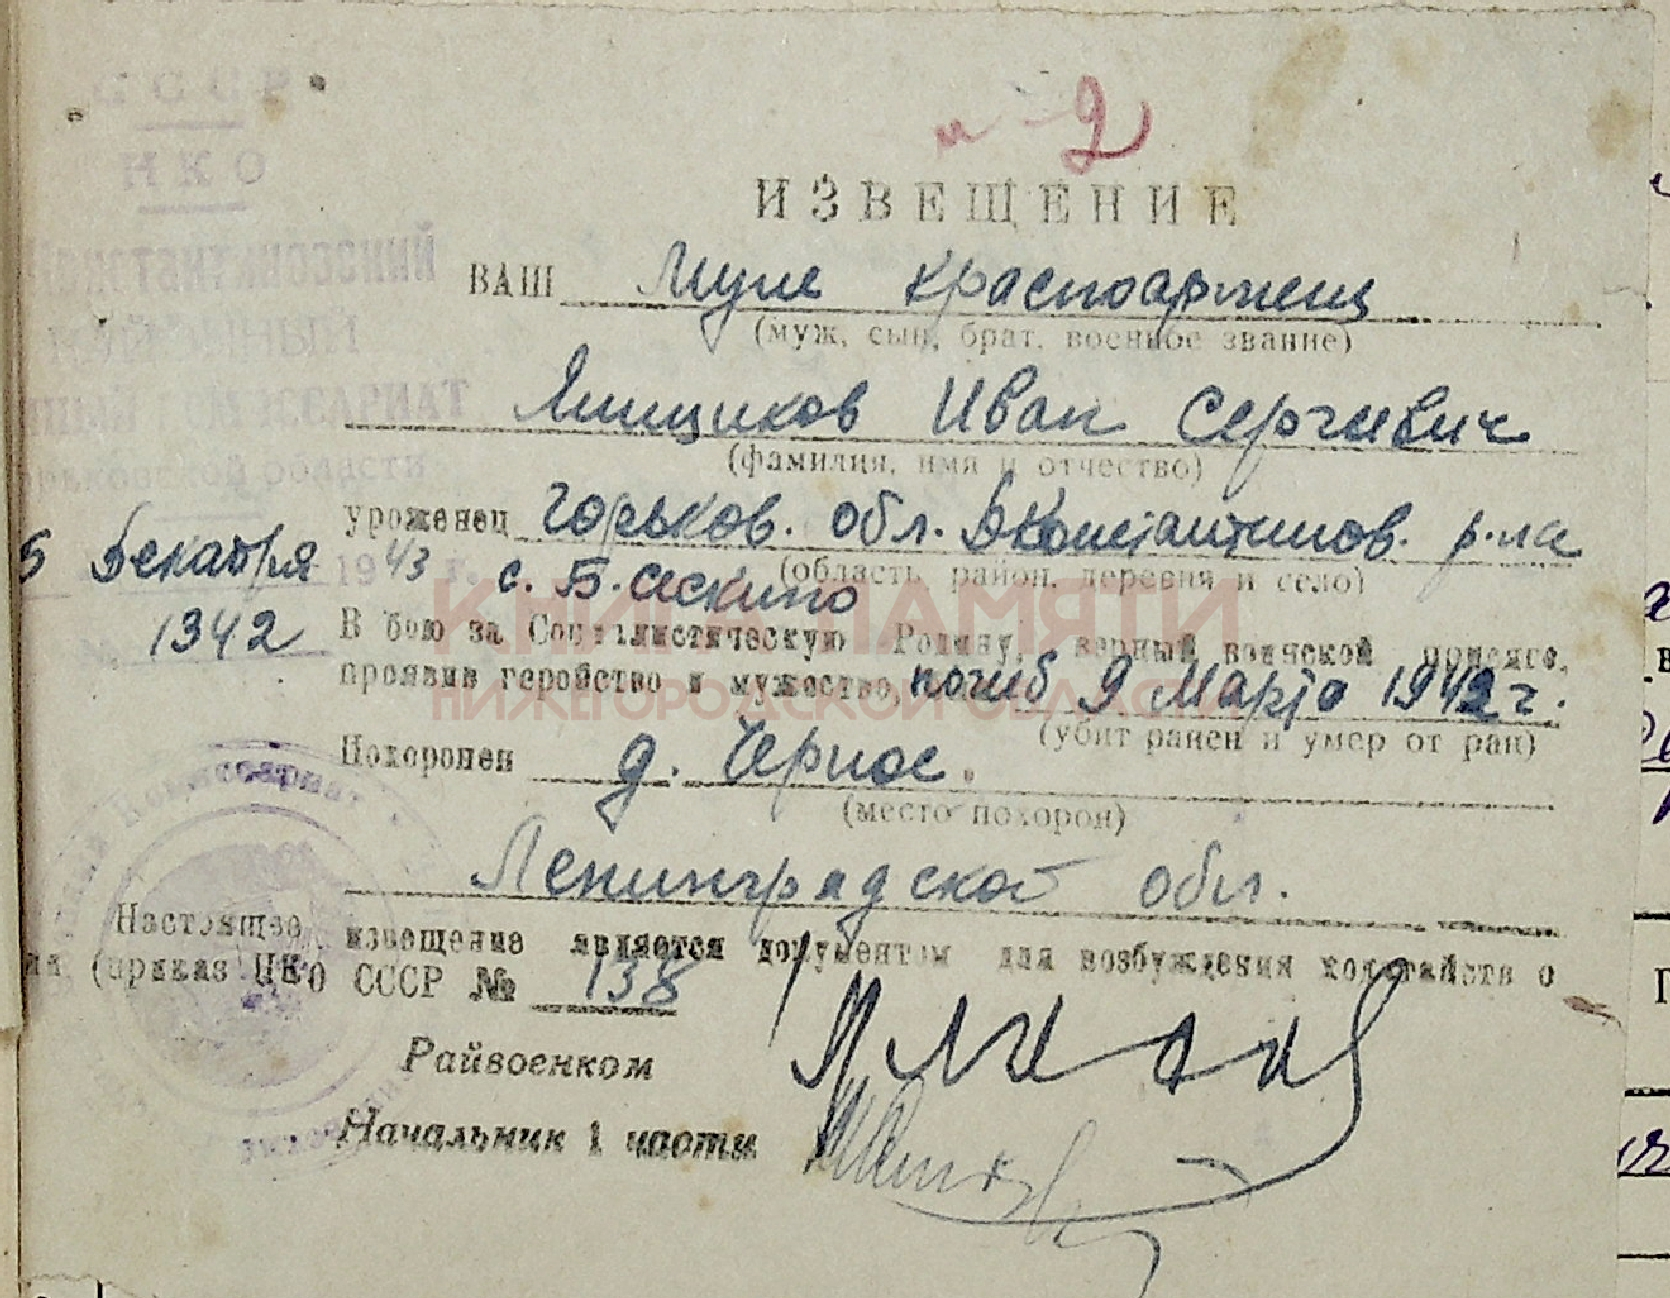 СССР
НКО
и - 2
ИЗВЕЩЕНИЕ
ВАШ муж красноармеец
(муж, сын, брат, военное звание)
Ямщиков Иван Сергеевич
(фамилия, имя и отчество)
КОМИССАРИАТ
области
уроженец Горьков. обл. Д Константинов. р-на
(область, район, деревня и село)
5 Декабря 1943 г. с. Б. Сескино
1342
В бою за Социалистическую Родину, верный воинской присяге,
проявив геройство и мужество, погиб 9 Марта 1942 г.
(убит ранен и умер от ран)
Похоронен д. Черное.
(место похорон)
Ленинградской обл.
Настоящее извещение является документом для возбуждения ходатайств о
(приказ НКО СССР № 138
Райвоенком
Начальник 1 части
КНИГА ПАМЯТИ
НИЖЕГОРОДСКОЙ ОБЛАСТИ